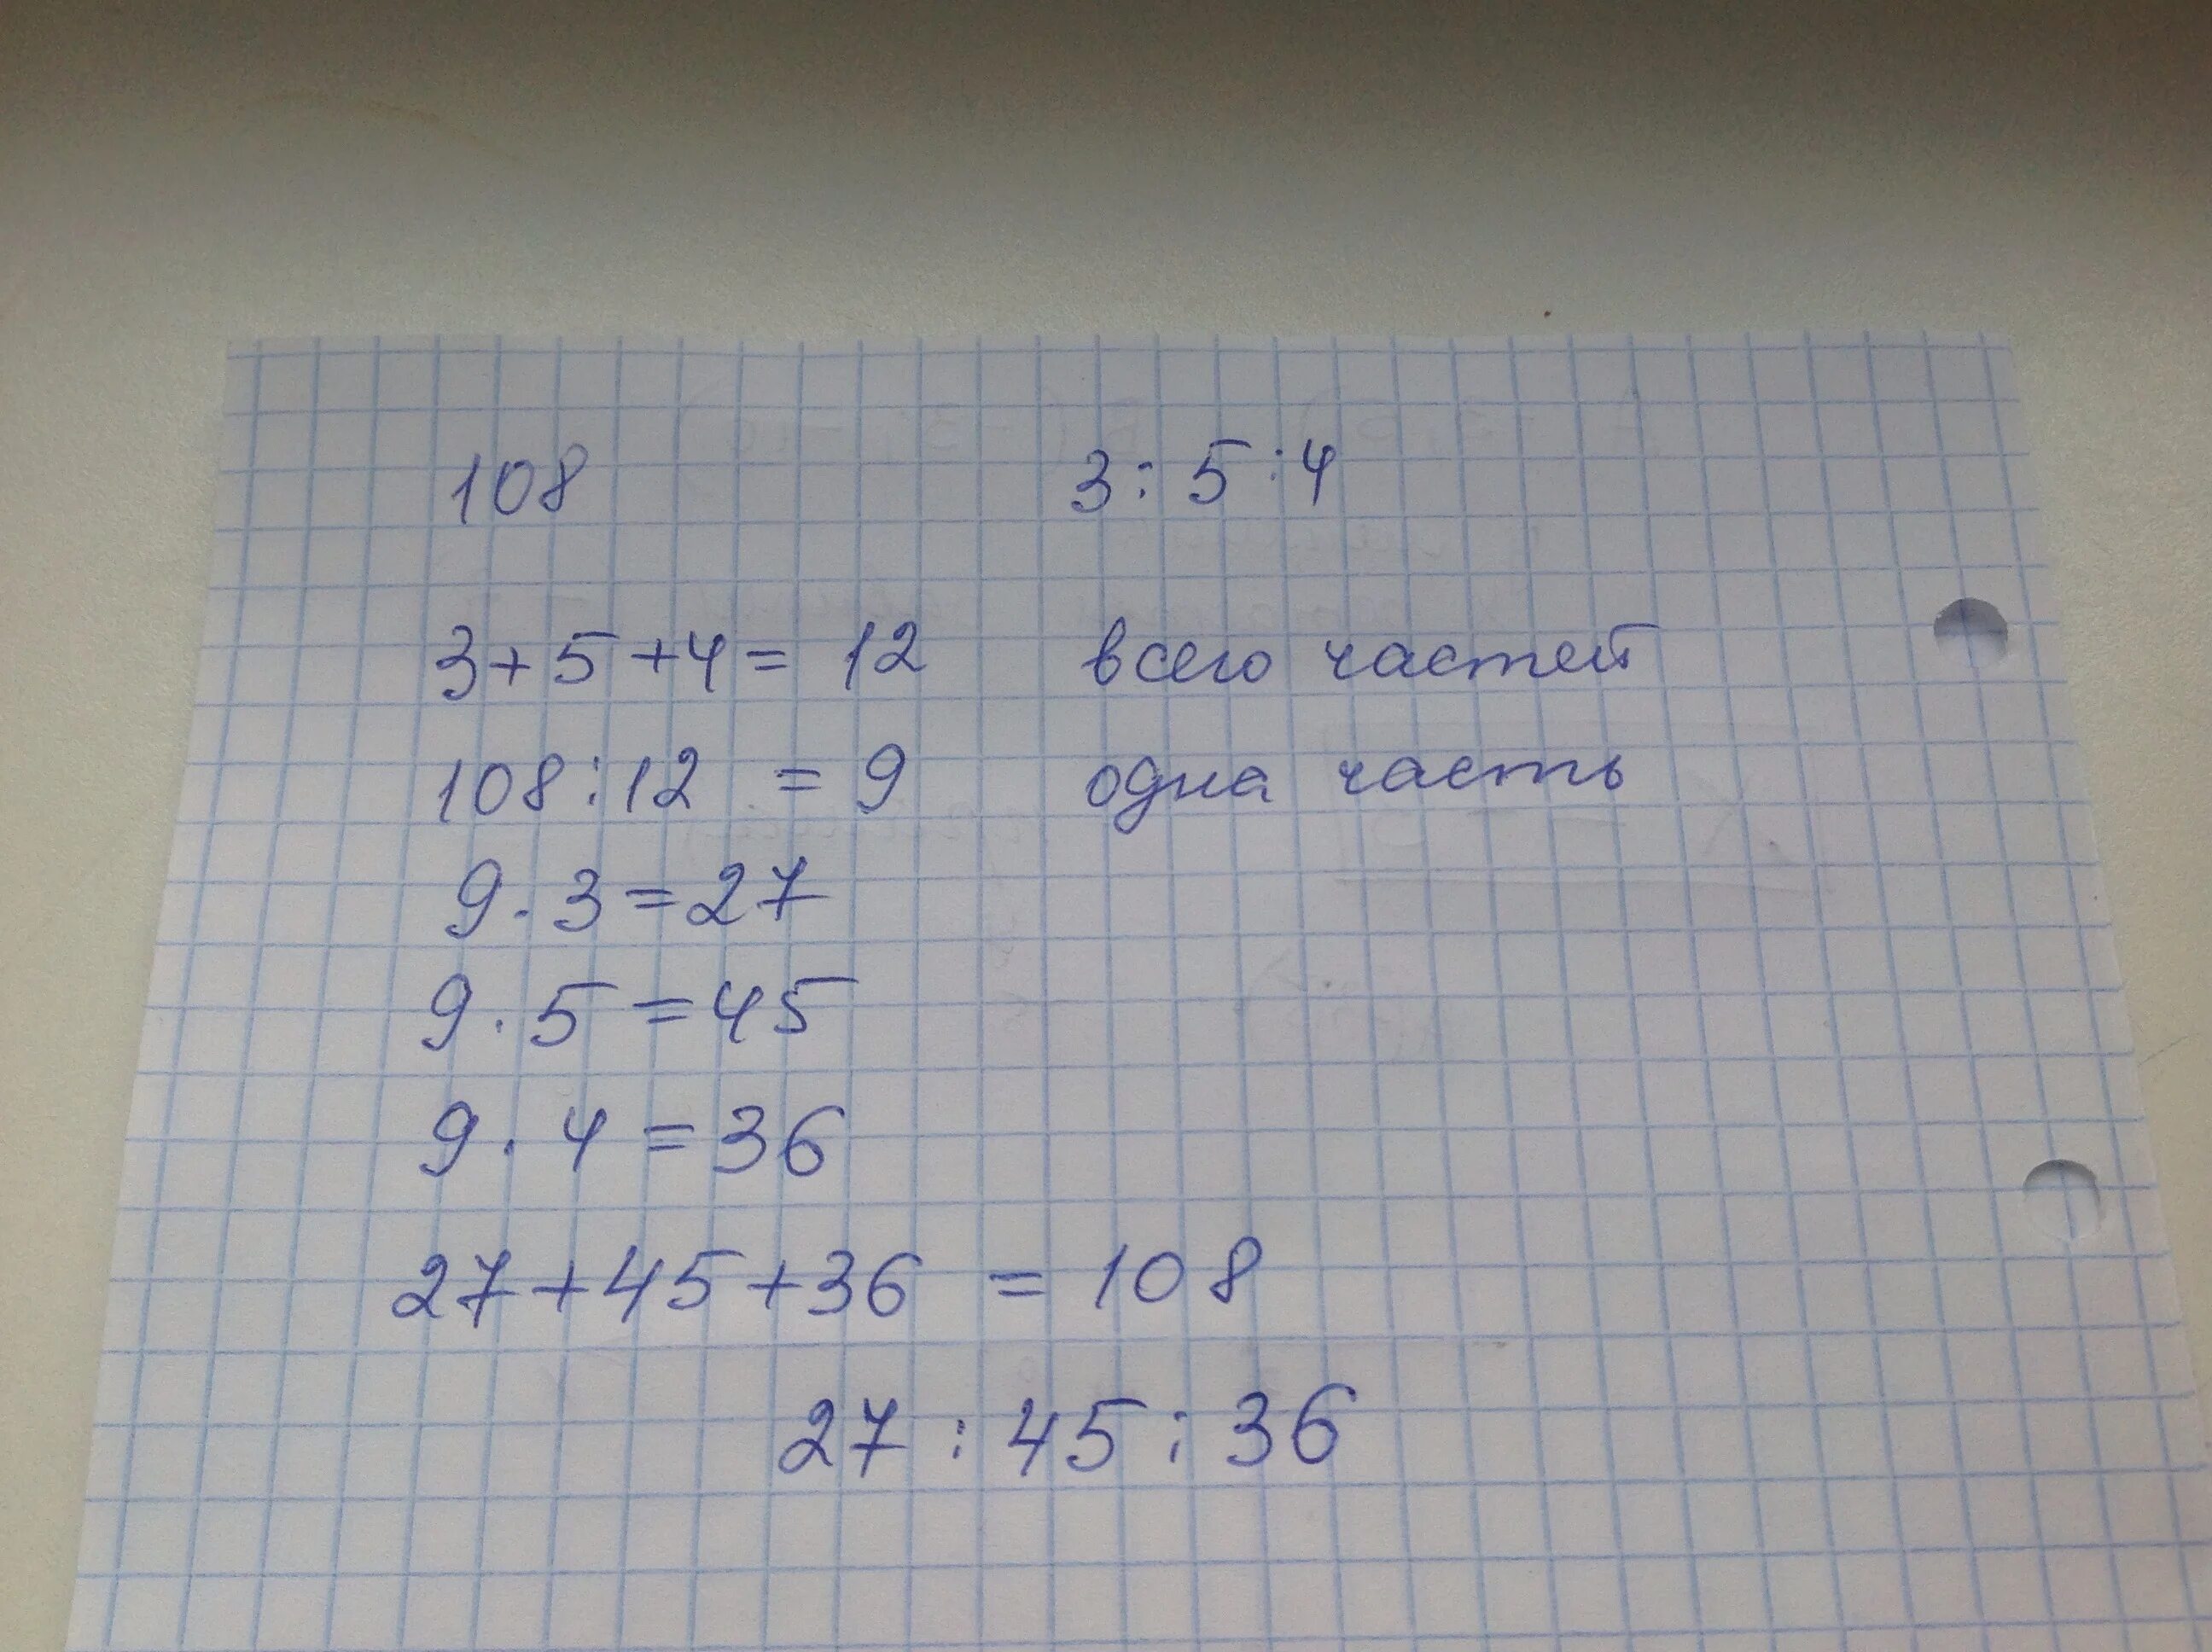 108 3:5:4
3+5+4= 12 всего частей
108:12 = 9 одна часть
9·3=27
9·5=45
9·4=36
27+45+36 = 108
27:45:36